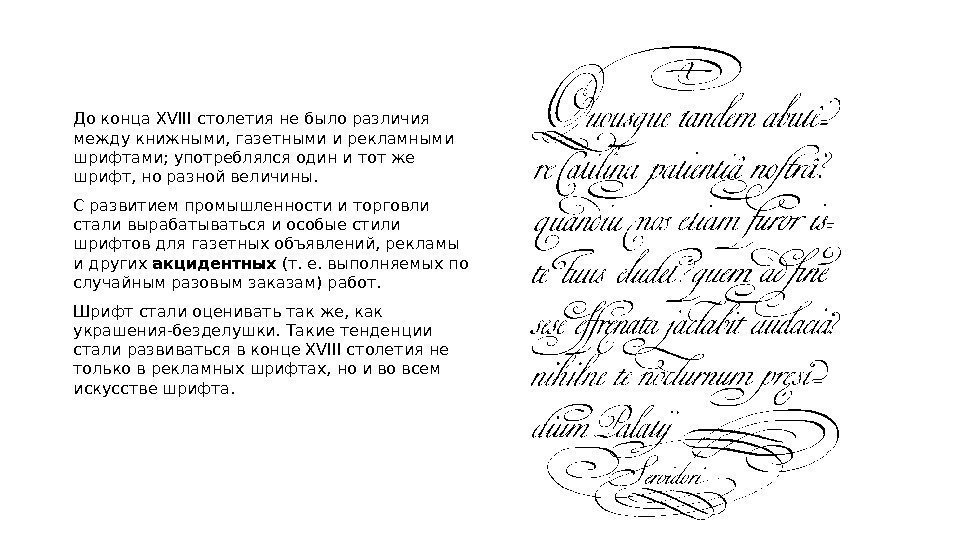 До конца XVIII столетия не было различия
между книжными, газетными и рекламными
шрифтами; употреблялся один и тот же
шрифт, но разной величины.
С развитием промышленности и торговли
стали вырабатываться и особые стили
шрифтов для газетных объявлений, рекламы
и других акцидентных (т. е. выполняемых по
случайным разовым заказам) работ.
Шрифт стали оценивать так же, как
украшения-безделушки. Такие тенденции
стали развиваться в конце XVIII столетия не
только в рекламных шрифтах, но и во всем
искусстве шрифта.
A
Quousque tandem abute=
re Catilina patientia noſtra?
quandiu nos etiam furor is=
te tuus eludet? quem ad fine
sese effrenata jactabit audacia?
nihilne te nocturnum præsi=
dium Palatij
Servidori